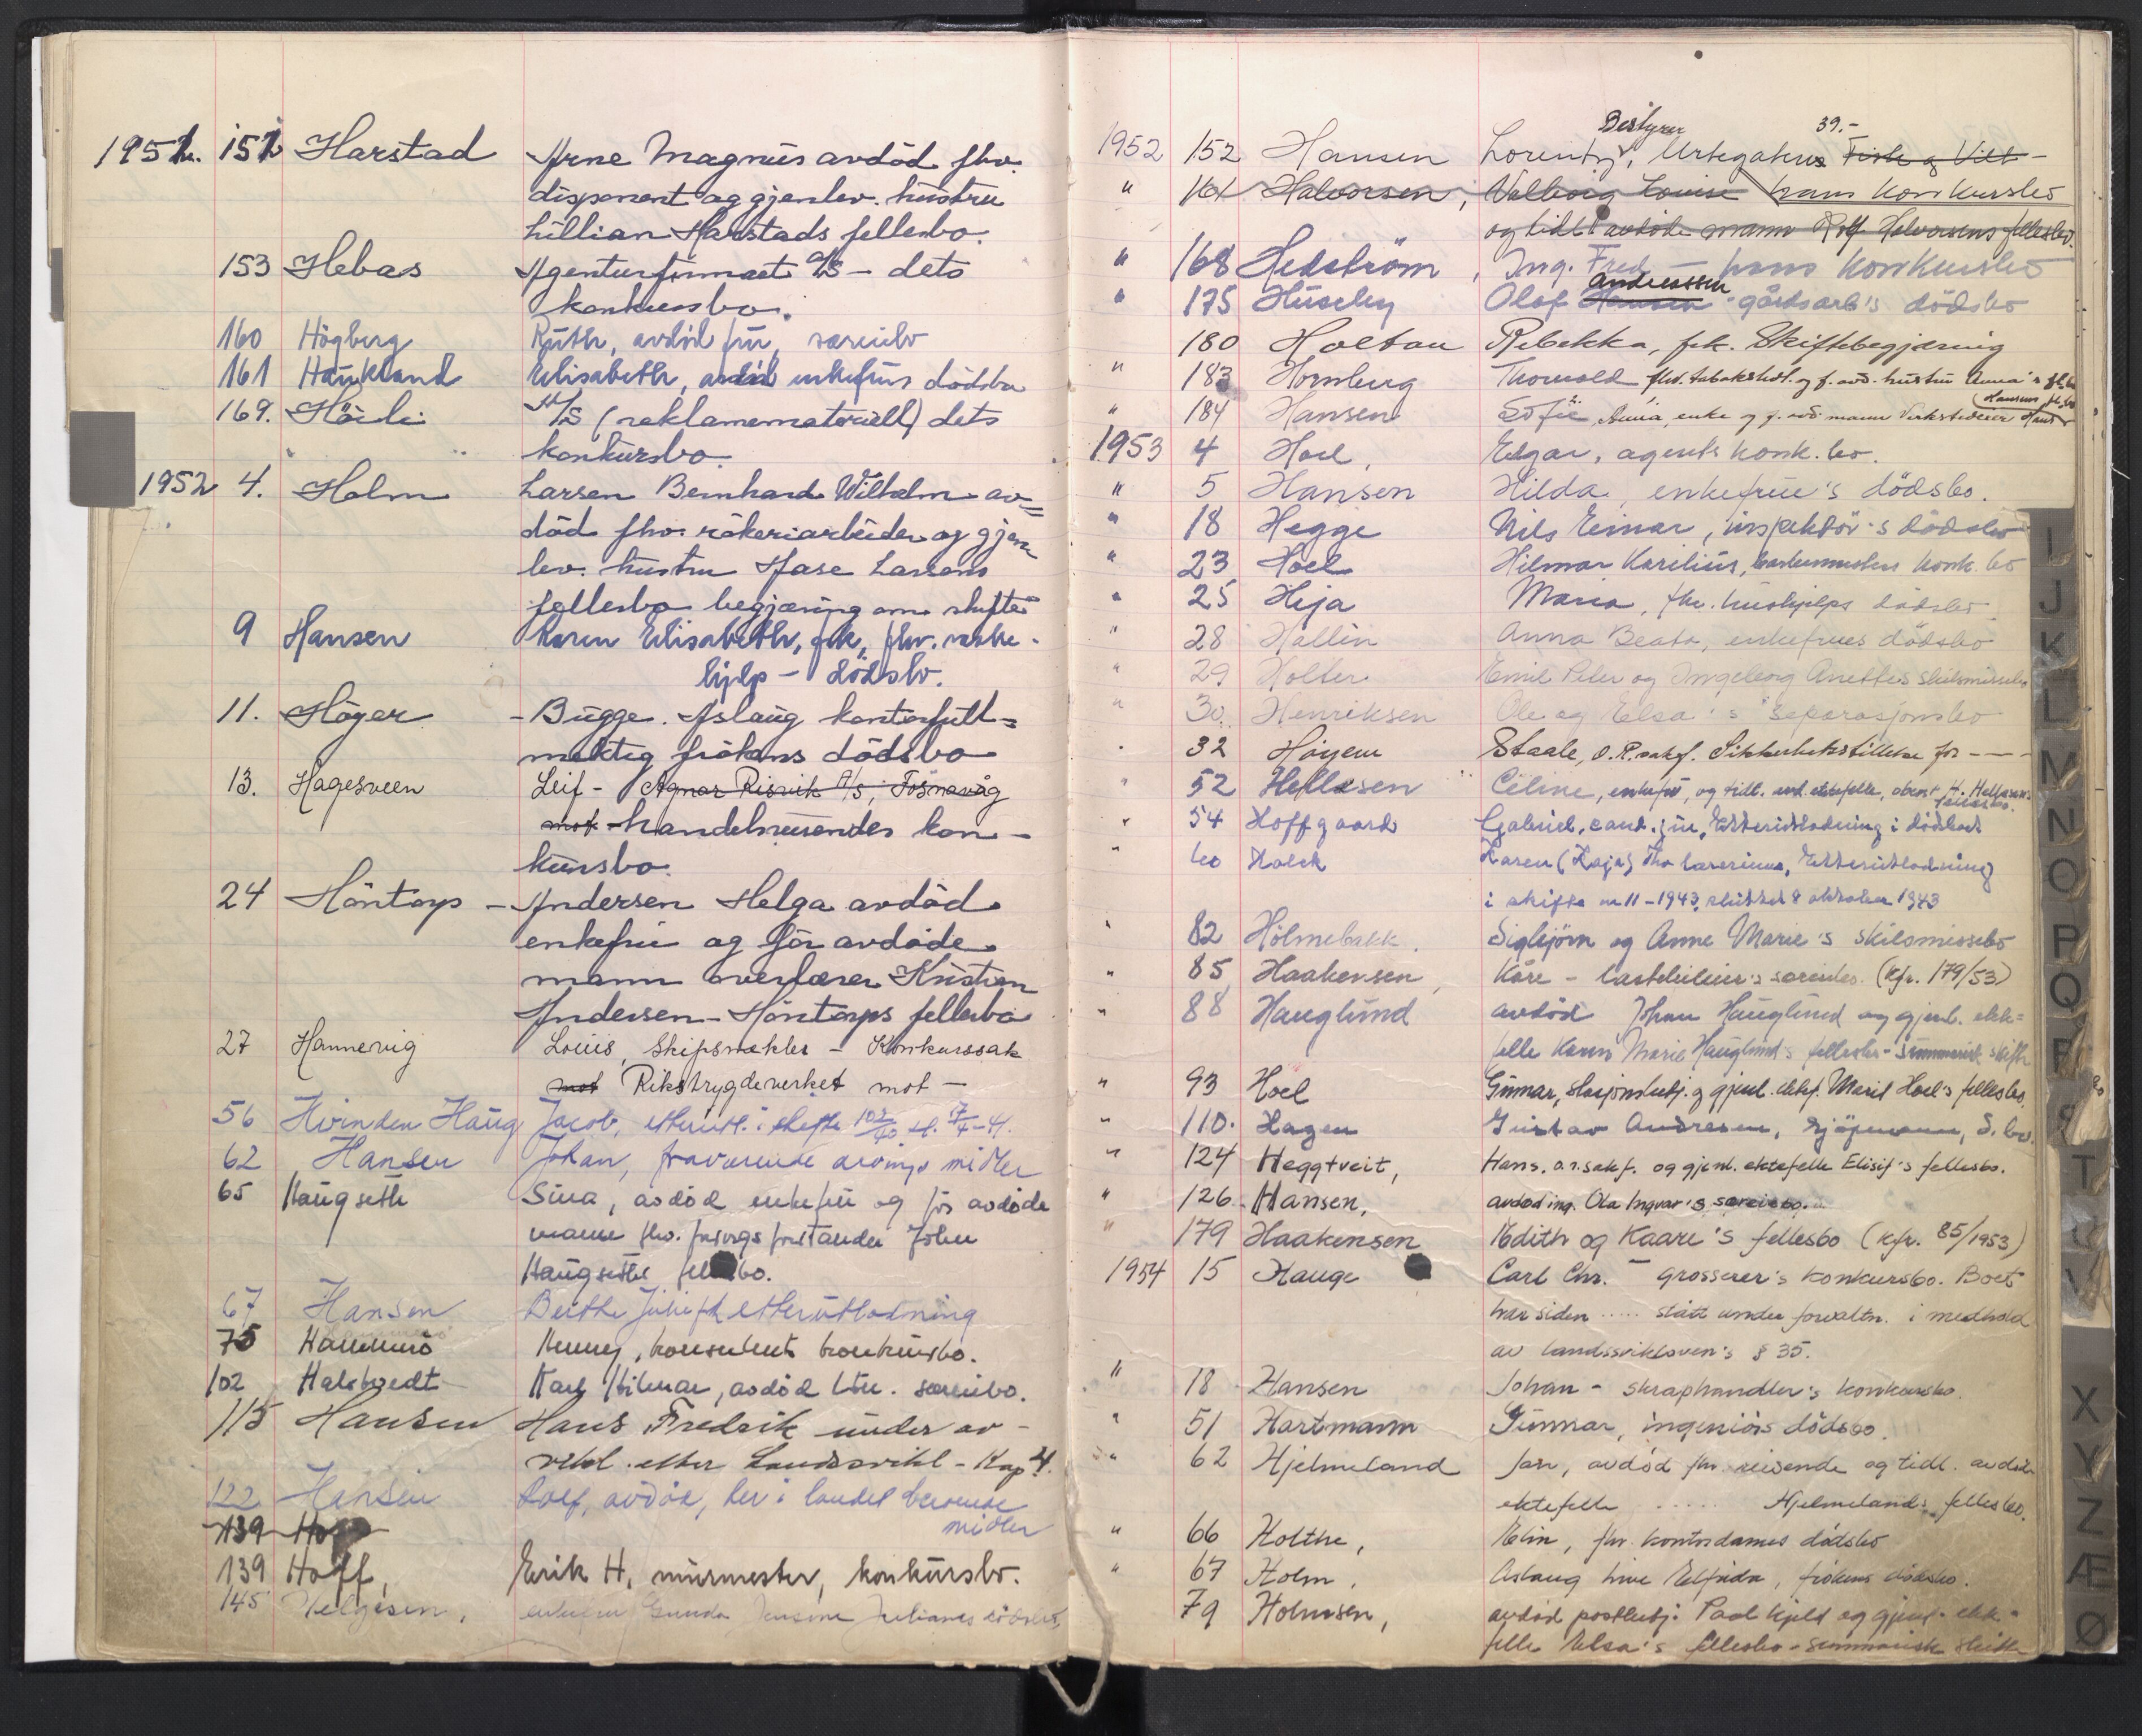 1951. 151 Harstad Arne Magnus avdöd fhv.
disponent og gjenlev. hustru
Lillian Harstads fellesbo.
153 Hebas Agenturfirmaet A/S - dets
konkursbo.
160 Högberg Ruth, avdöd fru, særeiebo
161 Haukland Elisabeth, avdöd enkefrus dödsbo
169. A/S (reklamemateriell) dets
konkursbo.
1952 4. Holm Larsen Bernhard Wilhelm av=
död fhv. rökeriarbeider og gjen
lev. hustru Aase Larsens
fellesbo begjæring om skifte
9 Hansen Karen Elisabeth, frk, fhv. vaske-
hjelp - dödsbo.
11. Höyer - Bugge. Aslaug kontorfull=
mektig frökens dödsbo
13. Hagesveen Leif - Agnar Risvik A/S, Fosnavåg
mot handelsreisendes kon-
kursbo.
24 Höntorp - Andersen Helga avdöd
enkefru og för avdöde
mann overlærer Kristian
Andersen-Höntorps fellesbo
27 Hannevig Louis, Skipsmekler - Konkurssak
mot Rikstrygdeverket mot -
56 Hvinden Haug Jacob, etterutl. i skifte 102/40 sl. 17/4-41.
62 Hansen Johan, fraværende arvings midler
65 Haugseth Sina, avdöd enkefru og för avdöde
manns fhv. forstander John
Haugseths fellesbo.
67 Hansen Berthe etterutlodning
75 Henny, konsulent konkursbo.
102 Halstvedt Karl Hilmar, avdöd særeiebo.
115 Hansen Hans Fredrik under av-
vikl. etter Landssvikl - Kap 4.
122 Hansen Rolf, avdöd, her i landet beroende
midler
139 Hoff
139 Hoff, Erik H, murmester, konkursbo.
145 Helgesen, enkefru Gunda Jensine Julianes dödsbo
Bestyrer 39.-
1952 152 Hansen Lorentz, Urtegatens Fisk og Vilt -
" 161 Halvorsen, Valborg Louise hans konkursbo
og tidl avdöde mann Rolf Halvorsens fellesbo.
" 168 Hedström, Ing. Fred - hans konkursbo
Andreassen
" 175 Huseby Olaf Hansen gårdsarb's dödsbo
180 Holtan Rebekka, frk. Skiftebegjæring
" 183 Hornburg Thorvald fhv. tobakshdl. og f. avd. hustru Anna's
Hansens
" 184 Hansen Sofie Anna, enke og f. avd. mann Verkstedeier Hans
1953 4 Hoel, Edgar, agents konk. bo.
" 5 Hansen Hilda, enkefrue's dödsbo.
" 18 Hegge Nils Einar, inspektör's dödsbo
" 23 Hoel Hilmar Karilius, konk. bo
" 25 Heja Maria, fhv. hushjelps dödsbo
" 28 Hallin Anna Beata, enkefrues dödsbo
" 29 Holter Emil Peter og Ingeborg Anettes skilsmissebo
" 30. Henriksen Ole og Elsa's separasjonsbo
" 32 Höyem Staale, o.r.sakf. Sikkerhetsstillelse for - - -
" 52 Hellesen Celine, enkefru, og tidl. avd. ektefelle, oberst H. Hellesens
fellesbo.
" 54 Hoffgaard Gabriel, cand. jur, Etterutlodning i dödsbo
" 60 Holck Karen (Kaja) Etterutlodning
i skifte nr 11-1943, sluttet 8 oktober 1943
" 82 Holmebakk. Sigbjörn og Anne Marie's skilsmissebo
" 85 Haakensen, Kåre - lastebileier's særeiebo. (kfr. 179/53)
" 88 Hauglund avdöd Johan Hauglund og gjenl. ekte=
felle Karen Marie Hauglund's fellesbo - summarisk skifte
" 93 Hoel Gunnar, stasjonsbetj. og gjenl. ektef. Marit Hoel's fellesbo.
" 110. Hagen Gustav Andresen, sjömann, d. bo.
" 124 Heggtveit, Hans. o.r.sakf. og gjenl. ektefelle Elisif's fellesbo.
" 126. Hansen, avdöd ing. Ola Ingvar's særeiebo.
" 179 Haakensen Edith og Kaare's fellesbo (kfr. 85/1953)
1954 15 Hauge Carl Chr. - grosserer's konkursbo. Boet
har siden ..... stått under forvaltn. i medhold
av landssvikloven's § 35.
" 18 Hansen Johan - skraphandler's konkursbo.
" 51 Hartmann Gunnar, ingeniörs dödsbo.
" 62 Hjelmeland Jan, avdöd fhv. reisende og tidl. avdöde
ektefelle ...... Hjelmelands fellesbo.
" 66 Holthe, Elin, fhv. kontordames dödsbo
" 67 Holm, Aslaug Line Elfrida, frökens dödsbo.
79 Holmsen, avdöd postbetj. Paul Kjeld og gjenl. ekte-
felle Elsa's fellesbo - summarisk skifte
I
J
K
L
M
N
O
P
Q
R
S
T
U
V
X
Y
Z
Æ
Ø